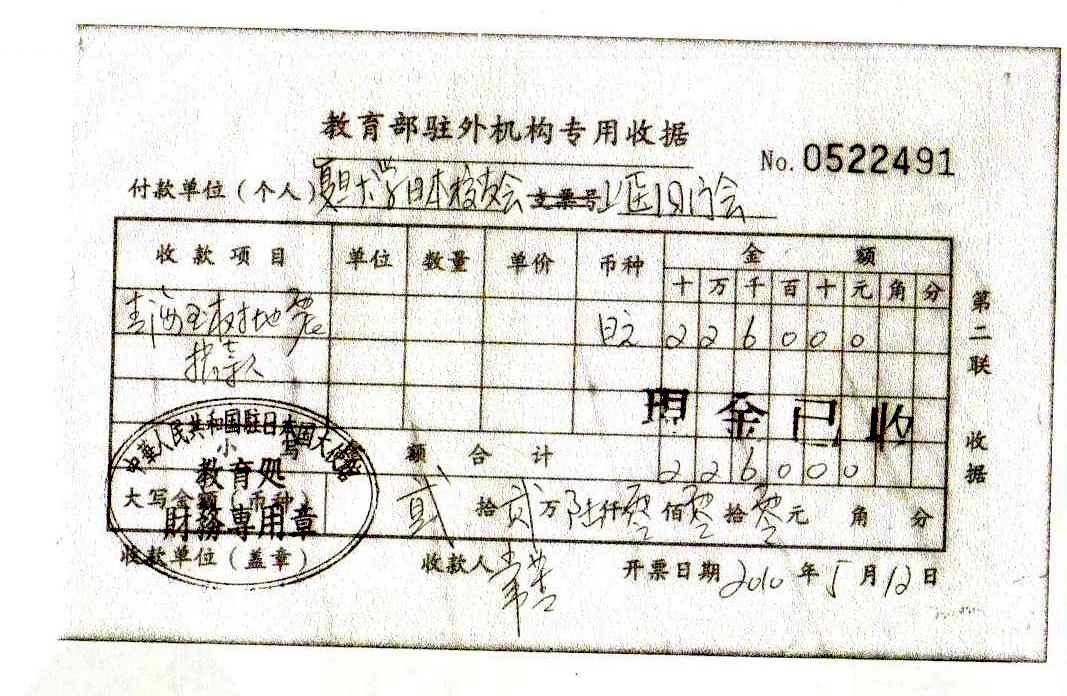 教育部驻外机构专用收据
No. 0522491
付款单位(个人)复旦大学日本校友会 支票号 上医日门会
收款项目 单位 数量 单价 币种 金额
十 万 千 百 十 元 角 分
青海玉树地震 日元 2 2 6 0 0 0
捐款
现金已收
小写金额合计 2 2 6 0 0 0
大写金额(币种) 贰拾贰万陆仟零佰零拾零元 角 分
收款单位(盖章) 收款人 开票日期 2010年5月12日
中华人民共和国驻日本国大使馆
教育处
财務専用章
第二联 收据